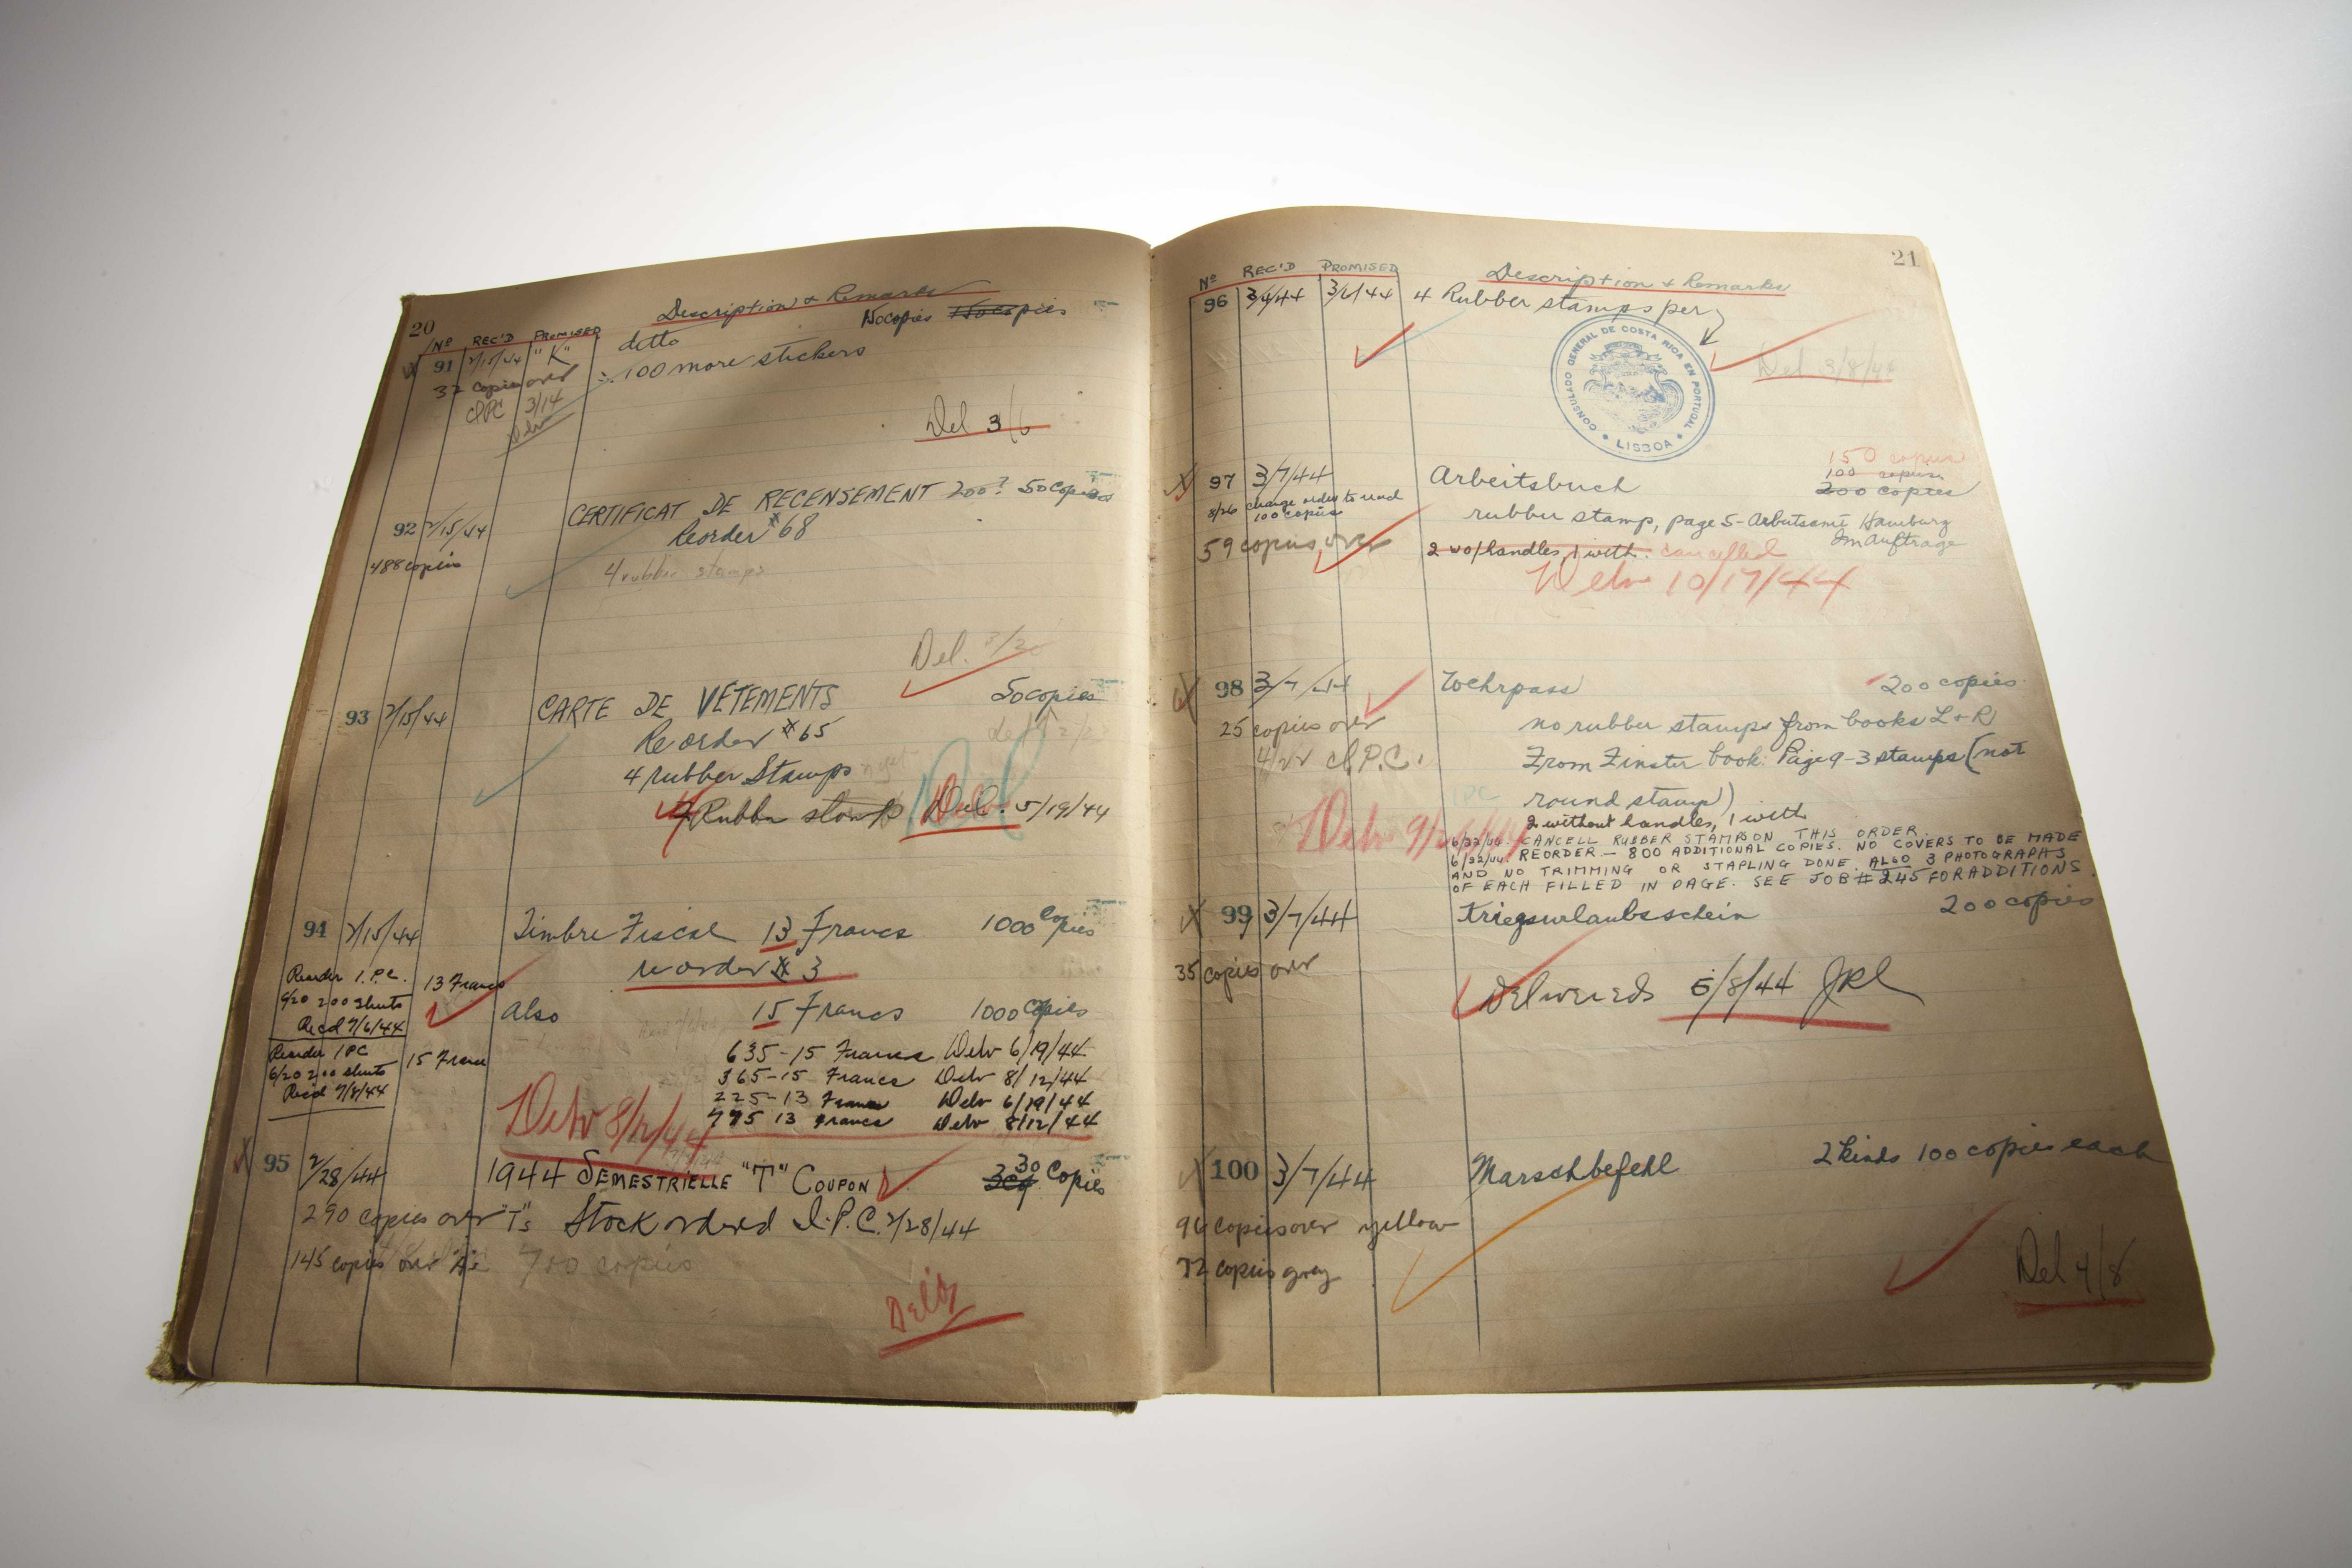 20
Description & Remarks
No REC'D PROMISED
91 2/15/44 "K" ditto 15 copies
32 copies over 100 more stickers
IPC 3/14
Delv
Del 3/6
92 2/15/44 CERTIFICAT DE RECENSEMENT 200? 50 copies
Reorder #68
488 copies
4 rubber stamps
Del. 3/20
93 2/15/44 CARTE DE VÊTEMENTS 50 copies
Reorder #65
4 rubber Stamps
Rubber stamp Del. 5/19/44
94 2/15/44 Timbre Fiscal 13 Francs 1000 Copies
reorder # 3
Reorder I.P.C. 13 Francs
6/20 200 sheets
Recd 7/6/44
Also 15 Francs 1000 Copies
Reorder IPC 15 Francs
6/20 200 sheets
Recd 7/8/44
635-15 Francs Delv 6/19/44
365-15 Francs Delv 8/12/44
225-13 Francs Delv 6/19/44
775 13 Francs Delv 8/12/44
Delv 8/12/44
95 2/28/44 1944 SEMESTRIELLE "T" COUPON 30 Copies
290 copies over "T"s Stock ordered I.P.C. 2/28/44
145 copies over 700 copies
Delv
21
No REC'D PROMISED Description & Remarks
96 3/4/44 3/6/44 4 Rubber stamps per
CONSULADO GENERAL DE COSTA RICA EN PORTUGAL
LISBOA
Del 3/8/44
150 copies
100 copies
97 3/7/44 Arbeitsbuch 200 copies
8/26 change order to read
100 copies
rubber stamp, page 5 - Arbeitsamt Hamburg
Im Auftrage
59 copies over 2 wo/handles, 1 with. cancelled
Delv 10/17/44
98 3/7/44 Wehrpass 200 copies
25 copies over no rubber stamps from books L & R
4/22 I.P.C. From Finster book: Page 9 - 3 stamps (not
round stamp)
2 without handles, 1 with
Delv 9/26/44
6/22/44. CANCELL RUBBER STAMPS ON THIS ORDER.
6/22/44. REORDER - 800 ADDITIONAL COPIES. NO COVERS TO BE MADE
AND NO TRIMMING OR STAPLING DONE. ALSO 3 PHOTOGRAPHS
OF EACH FILLED IN PAGE. SEE JOB # 245 FOR ADDITIONS.
99 3/7/44 Kriegsurlaubsschein 200 copies
35 copies over
Delivered 5/8/44 JRL
100 3/7/44 Marschbefehl 2 kinds 100 copies each
96 copies over yellow
72 copies grey
Del 4/8